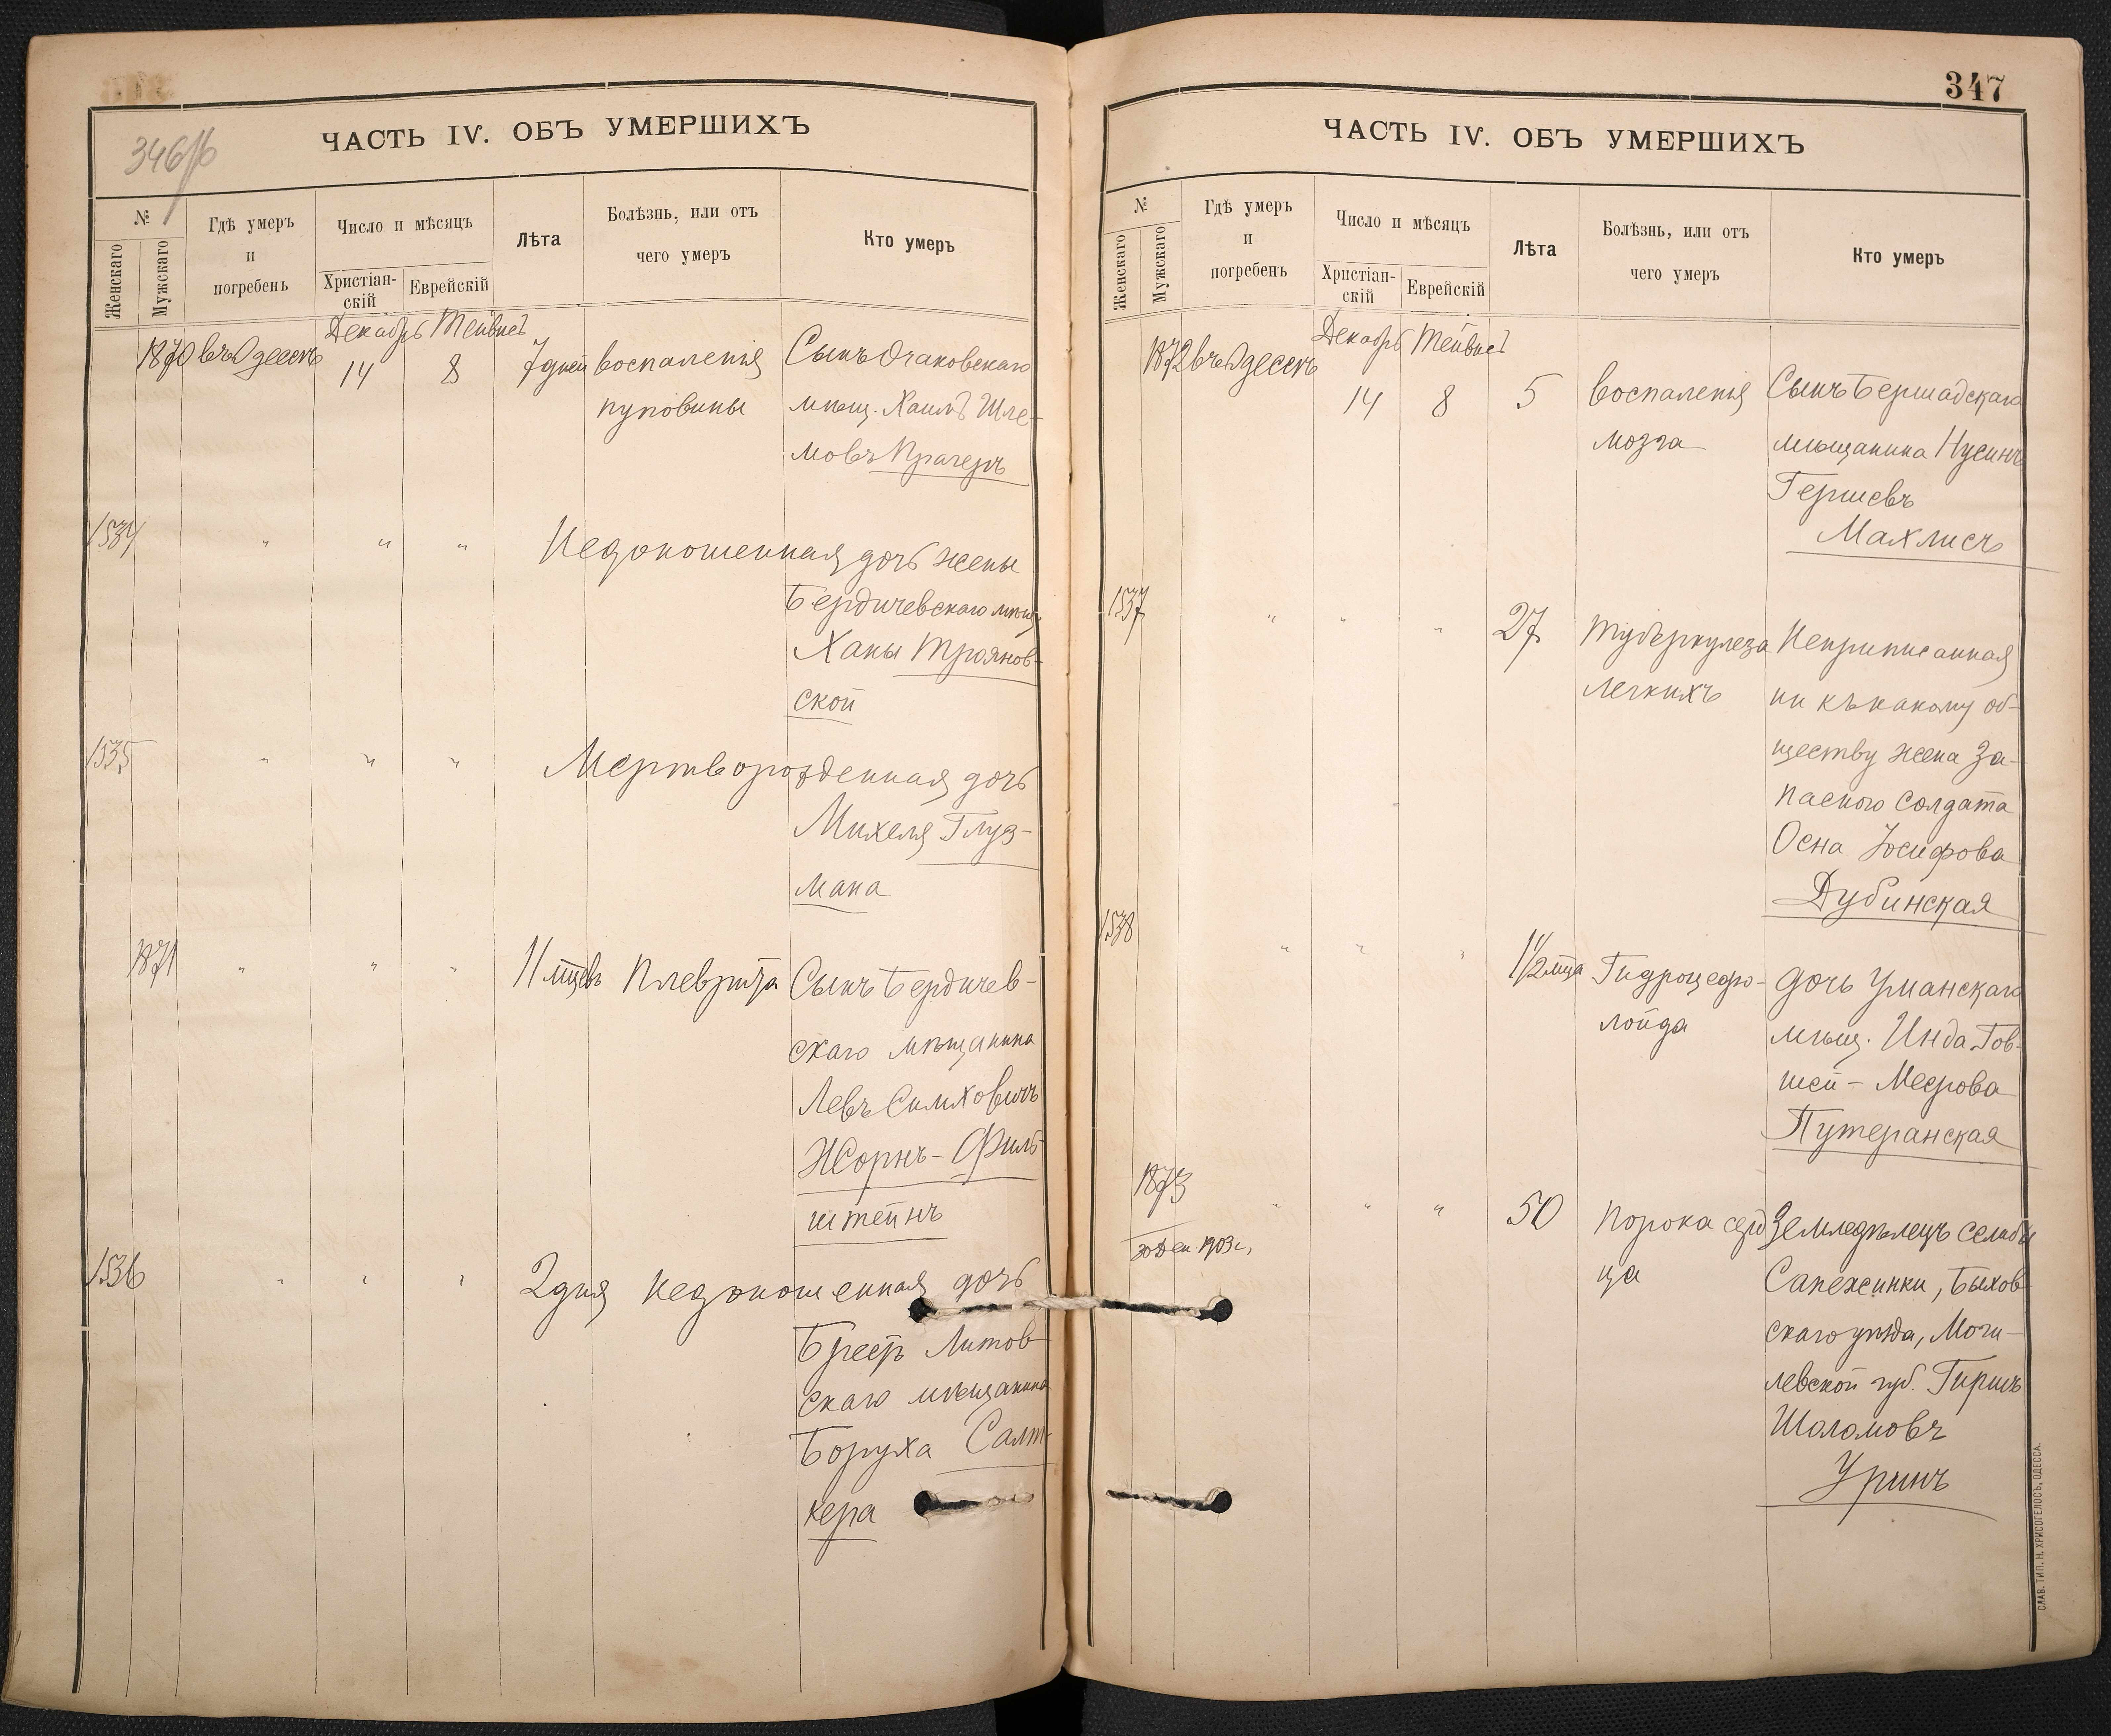 346/б
ЧАСТЬ IV. ОБЪ УМЕРШИХЪ
№
Женскаго
Мужскаго
Гдѣ умеръ
и
погребенъ
Число и мѣсяцъ
Христіан-
скій
Еврейскій
Лѣта
Болѣзнь, или отъ
чего умеръ
Кто умеръ
Декабрь Тейвисъ
1870 въ Одессѣ 14 8 7 дней воспаленія Сынъ Очаковскаго
пуповины мѣщ. Хаимъ Шле-
мовъ Прагеръ
1534 " " " Недоношенная дочь жены
Бердичевскаго мѣщ.
Ханы Трояновь-
ской
1535 " " " Мертворожденная дочь
Михеля Глуз-
мана
1871 " " " 11 мцевъ Плеврита Сынъ Бердичев-
скаго мѣщанина
Левъ Симховичъ
Жорнъ-Филь-
штейнъ
1536 " " " 2 дня недоношенная дочь
Брестъ Литов-
скаго мѣщанина
Боруха Салт-
кера
347
ЧАСТЬ IV. ОБЪ УМЕРШИХЪ
№
Женскаго
Мужскаго
Гдѣ умеръ
и
погребенъ
Число и мѣсяцъ
Христіан-
скій
Еврейскій
Лѣта
Болѣзнь, или отъ
чего умеръ
Кто умеръ
Декабрь Тейвисъ
1872 въ Одессѣ 14 8 5 воспаленія Сынъ Бершадскаго
мозга мѣщанина Нусинъ
Гершевъ
Махлисъ
1537 " " " 27 туберкулеза Неприписанная
легкихъ ни къ какому об-
ществу жена за-
паснаго солдата
Осна Іосифова
Дубинская
1538 " " " 1 1/2 мца Гидроцефа- дочь Уманскаго
лоида мѣщ. Инда Гов-
шей-Меерова
Путеранская
1873 " " " 50 порока серд Земледѣлецъ селабы
30 Дек. 1903 г. ца Сапежинки, Быхов-
скаго уѣзда, Моги-
левской губ. Гиршъ
Шоломовъ
Уринъ
СЛАВ. ТИП. Н. ХРИСОГЕЛОСЪ, ОДЕССА.